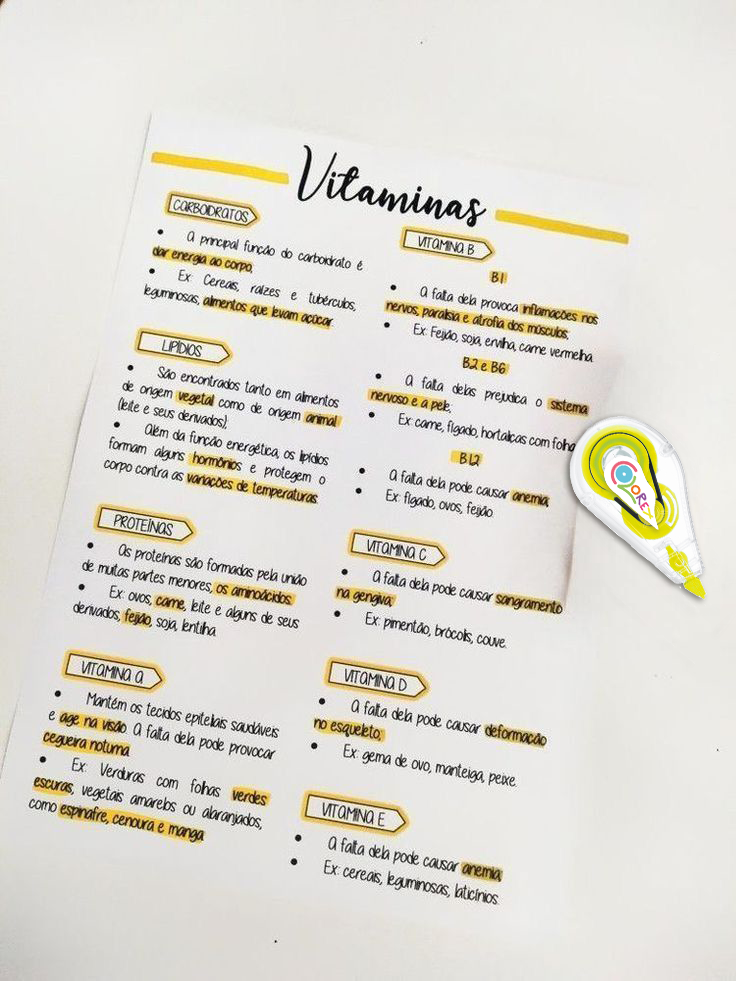 Vitaminas
CARBOIDRATOS
• A principal função do carboidrato é
dar energia ao corpo;
• Ex: Cereais, raízes e tubérculos,
leguminosas, alimentos que levam açúcar.
LIPÍDIOS
• São encontrados tanto em alimentos
de origem vegetal como de origem animal
(leite e seus derivados);
• Além da função energética, os lipídios
formam alguns hormônios e protegem o
corpo contra as variações de temperaturas.
PROTEÍNAS
• As proteínas são formadas pela união
de muitas partes menores, os aminoácidos.
• Ex: ovos, carne, leite e alguns de seus
derivados, feijão, soja, lentilha.
VITAMINA A
• Mantém os tecidos epiteliais saudáveis
e age na visão. A falta dela pode provocar
cegueira noturna.
• Ex: Verduras com folhas verdes
escuras, vegetais amarelos ou alaranjados,
como espinafre, cenoura e manga.
VITAMINA B
B1
• A falta dela provoca inflamações nos
nervos, paralisia e atrofia dos músculos;
• Ex: Feijão, soja, ervilha, carne vermelha.
B2 e B6
• A falta delas prejudica o sistema
nervoso e a pele;
• Ex: carne, fígado, hortaliças com folha
B12
• A falta dela pode causar anemia;
• Ex: fígado, ovos, feijão.
VITAMINA C
• A falta dela pode causar sangramento
na gengiva;
• Ex: pimentão, brócolis, couve.
VITAMINA D
• A falta dela pode causar deformação
no esqueleto;
• Ex: gema de ovo, manteiga, peixe.
VITAMINA E
• A falta dela pode causar anemia;
• Ex: cereais, leguminosas, laticínios.